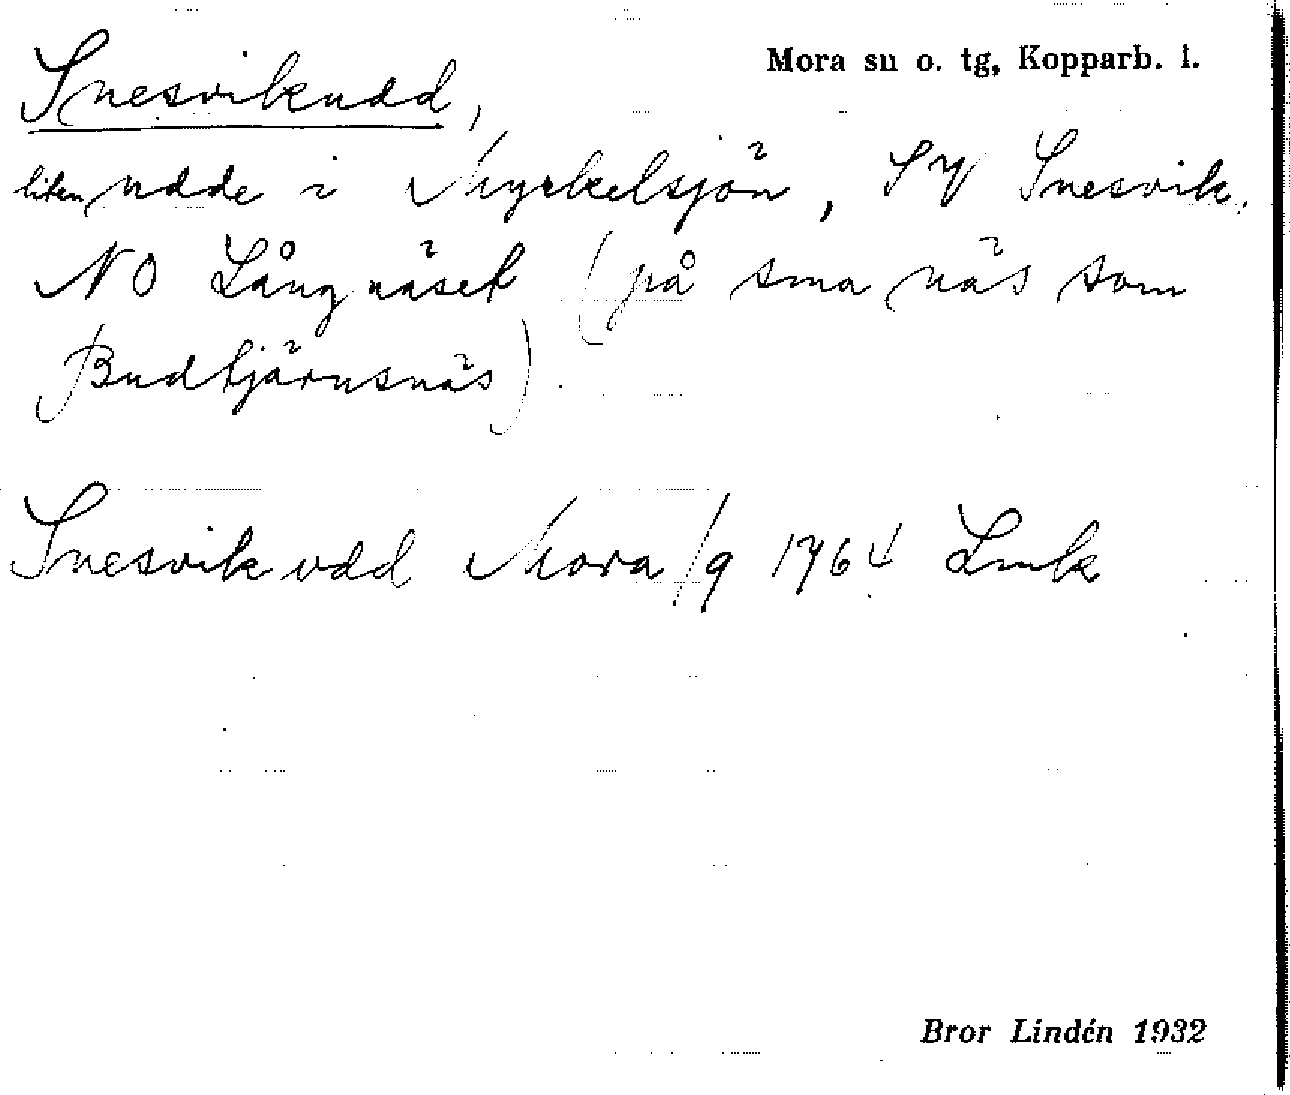 Mora su o. tg, Kopparb. l.
Snesvikudd,
liten udde i Myckelsjön, SV Snesvik,
NO Långnäset (på sma näs som
Budtjärnsnäs).
Snesvik udd Mora /9 1764 Lmk
Bror Lindén 1932